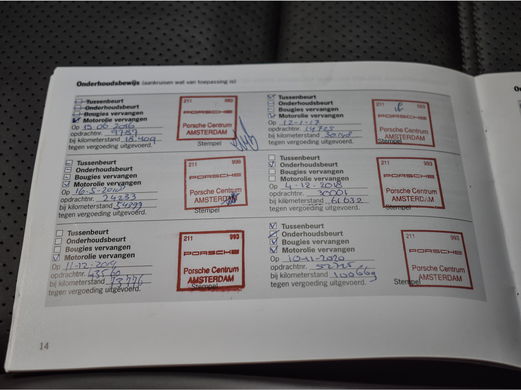 Onderhoudsbewijs (aankruisen wat van toepassing is)
Tussenbeurt
Onderhoudsbeurt
Bougies vervangen
Motorolie vervangen
Op
opdrachtnr. 9787
bij kilometerstand 18.409
tegen vergoeding uitgevoerd.
211 993
PORSCHE
Porsche Centrum
AMSTERDAM
Stempel
Tussenbeurt
Onderhoudsbeurt
Bougies vervangen
Motorolie vervangen
Op 12-1-17
opdrachtnr. 14725
bij kilometerstand
tegen vergoeding uitgevoerd.
211 993
PORSCHE
Porsche Centrum
AMSTERDAM
Stempel
Tussenbeurt
Onderhoudsbeurt
Bougies vervangen
Motorolie vervangen
Op 16-5-2018
opdrachtnr. 24233
bij kilometerstand
tegen vergoeding uitgevoerd.
211 993
PORSCHE
Porsche Centrum
AMSTERDAM
Stempel
Tussenbeurt
Onderhoudsbeurt
Bougies vervangen
Motorolie vervangen
Op 4-12-2018
opdrachtnr. 30001
bij kilometerstand 61032
tegen vergoeding uitgevoerd.
211 993
PORSCHE
Porsche Centrum
AMSTERDAM
Stempel
Tussenbeurt
Onderhoudsbeurt
Bougies vervangen
Motorolie vervangen
Op
opdrachtnr. 43560
bij kilometerstand 73776
tegen vergoeding uitgevoerd.
211 993
PORSCHE
Porsche Centrum
AMSTERDAM
Stempel
Tussenbeurt
Onderhoudsbeurt
Bougies vervangen
Motorolie vervangen
Op 10-11-2020
opdrachtnr. 52725
bij kilometerstand 100669
tegen vergoeding uitgevoerd.
211 993
PORSCHE
Porsche Centrum
AMSTERDAM
Stempel
14